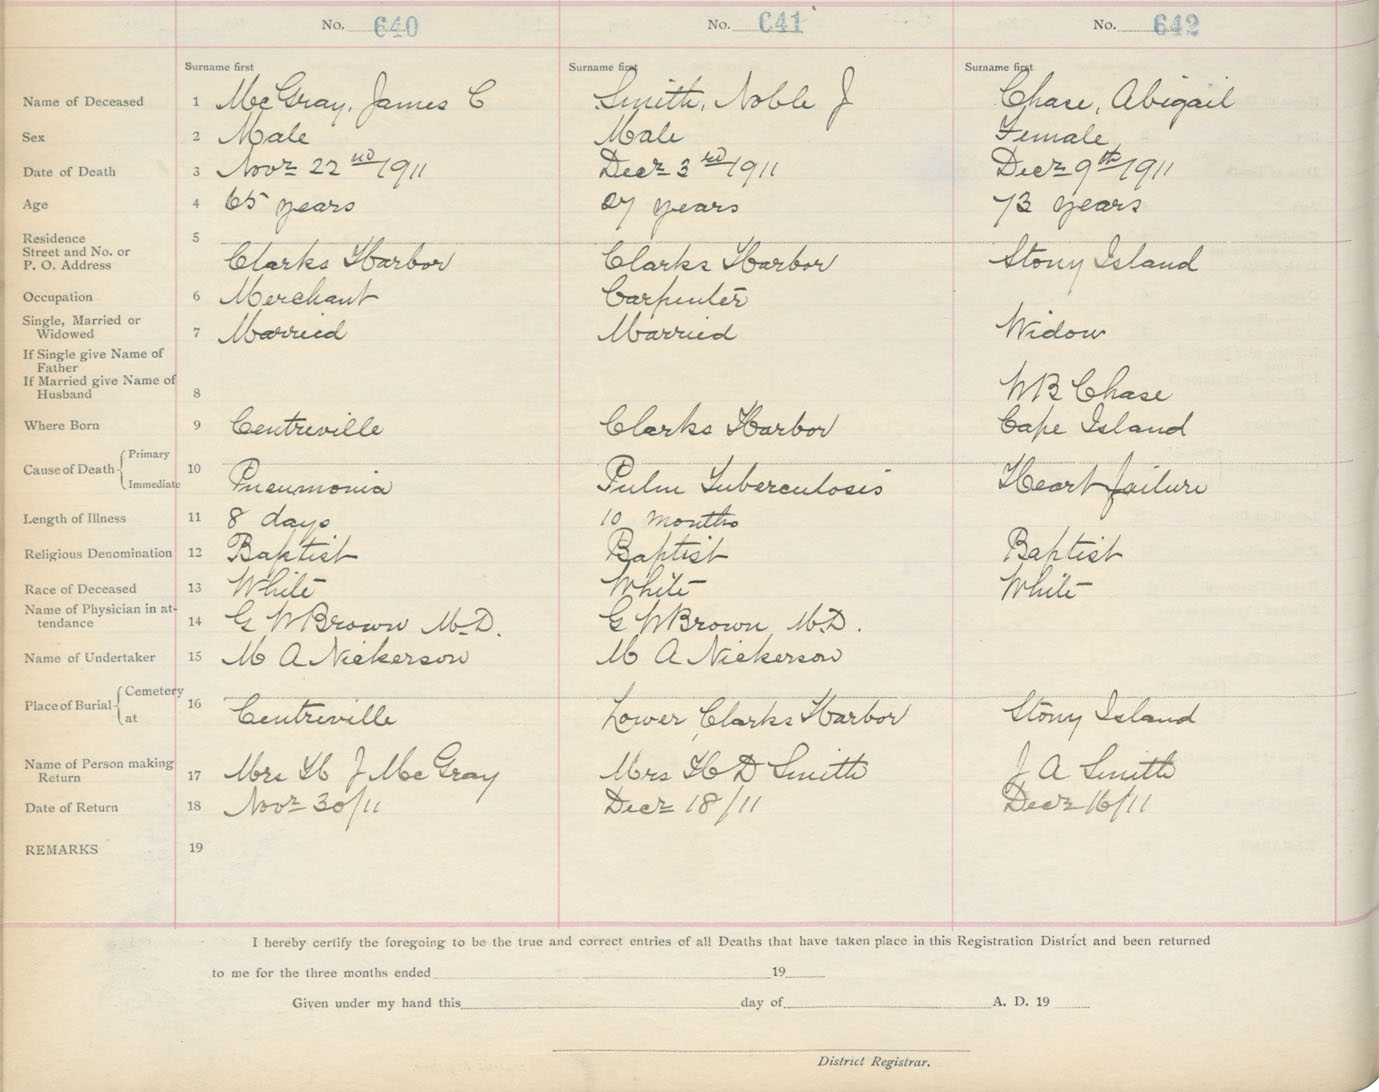 No. 640 No. 641 No. 642
Surname first Surname first Surname first
Name of Deceased 1 McGray, James C Smith, Noble J Chase, Abigail
Sex 2 Male Male Female
Date of Death 3 Novr 22nd 1911 Decr 3rd 1911 Decr 9th 1911
Age 4 65 years years 73 years
Residence 5
Street and No. or
P. O. Address Clarks Harbor Clarks Harbor Stony Island
Occupation 6 Merchant Carpenter
Single, Married or
Widowed 7 Married Married Widow
If Single give Name of
Father
If Married give Name of
Husband 8 W B Chase
Where Born 9 Centreville Clarks Harbor Cape Island
Cause of Death Primary 10
Immediate Pneumonia Pulm Tuberculosis Heart failure
Length of Illness 11 8 days 10 months
Religious Denomination 12 Baptist Baptist Baptist
Race of Deceased 13 White White White
Name of Physician in at-
tendance 14 G W Brown M.D. G W Brown M.D.
Name of Undertaker 15 M A Nickerson M A Nickerson
Place of Burial Cemetery 16
at Centreville Lower Clarks Harbor Stony Island
Name of Person making
Return 17 Mrs H J McGray Mrs H D Smith J A Smith
Date of Return 18 Novr 30/11 Decr 18/11 Decr 16/11
REMARKS 19
I hereby certify the foregoing to be the true and correct entries of all Deaths that have taken place in this Registration District and been returned
to me for the three months ended 19
Given under my hand this day of A. D. 19
District Registrar.